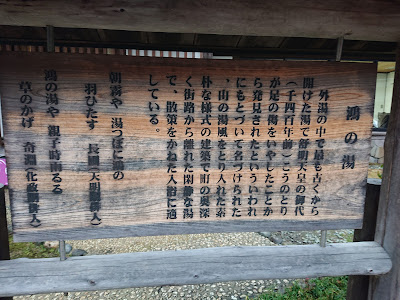 鴻の湯
外湯の中で最も古くから
開けた湯で舒明天皇の御代
(千四百年前)こうのとり
が足の傷をいやしたことか
ら発見されたといういわれ
にもとづいて名づけられた
、山の湯風をとり入れた素
朴な様式の建築で町の奥深
く街路から離れた閑静な湯
で、散策をかねた入浴に適
している。
朝霧や 湯つぼに鴻の
羽ひたす
鴻の湯や 親子時雨るる
草のかげ